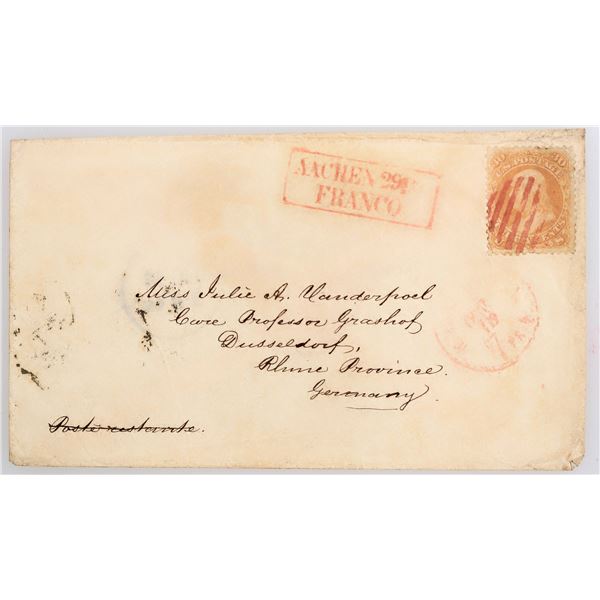 AACHEN 29
FRANCO
30 30
U.S. POSTAGE
Miss Julie A. Vanderpoel
Care Professor Grashof
Dusseldorf,
Rhine Province.
Germany.
Poste restante.